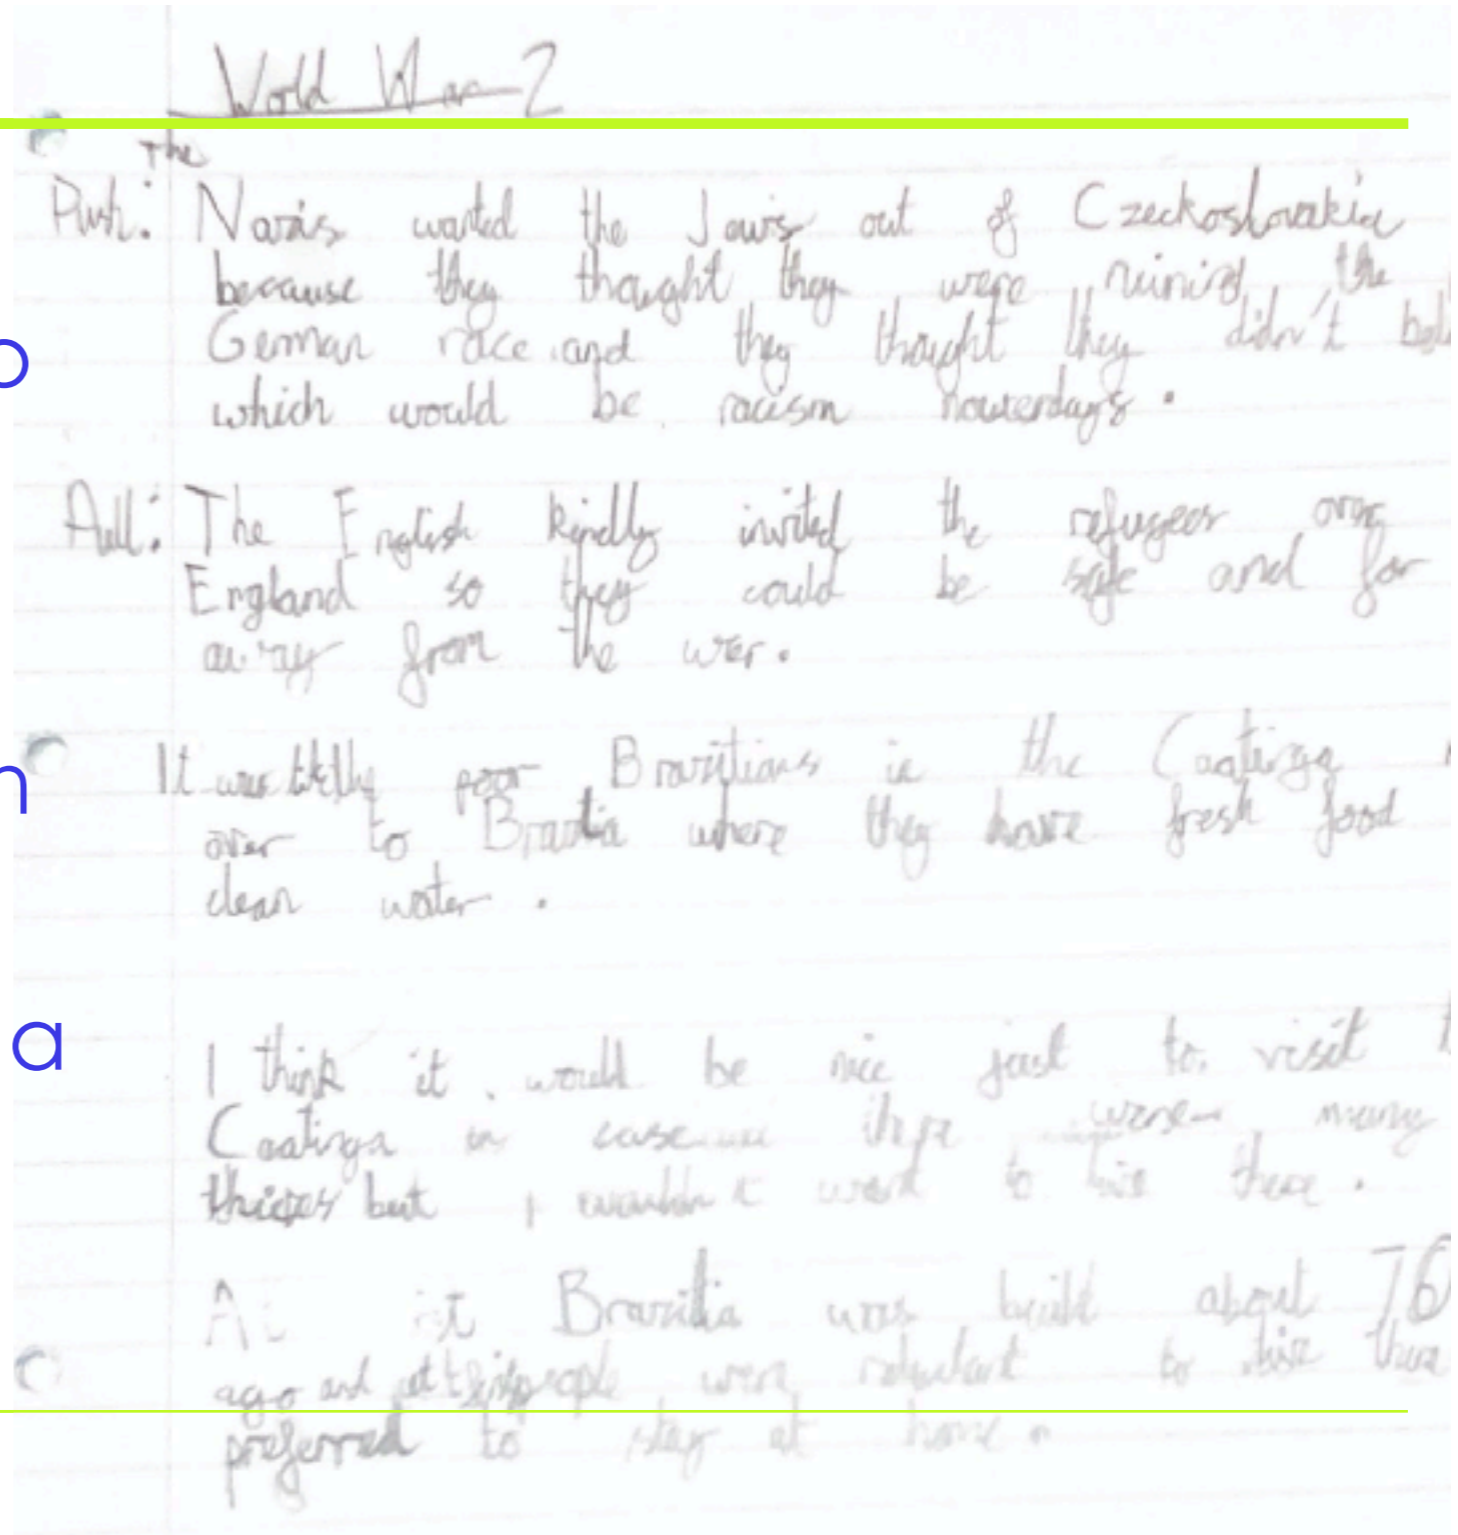 World War 2
The
Push: Nazis wanted the Jews out of Czeckoslovakia
because they thought they were ruining the
German race and they thought they didn't
which would be racism nowerdays.
Pull: The English kindly invited the refugees over
England so they could be safe and far
away from the war.
It was poor Brazilians in the Caatinga
over to Brazilia where they have fresh food
clean water.
I think it would be nice just to visit
Caatinga in case there were many
thieves but I wouldn't want to live there.
Brazilia was built about 76
ago and people were reluctant to live there
preferred to stay at home
o
n
a